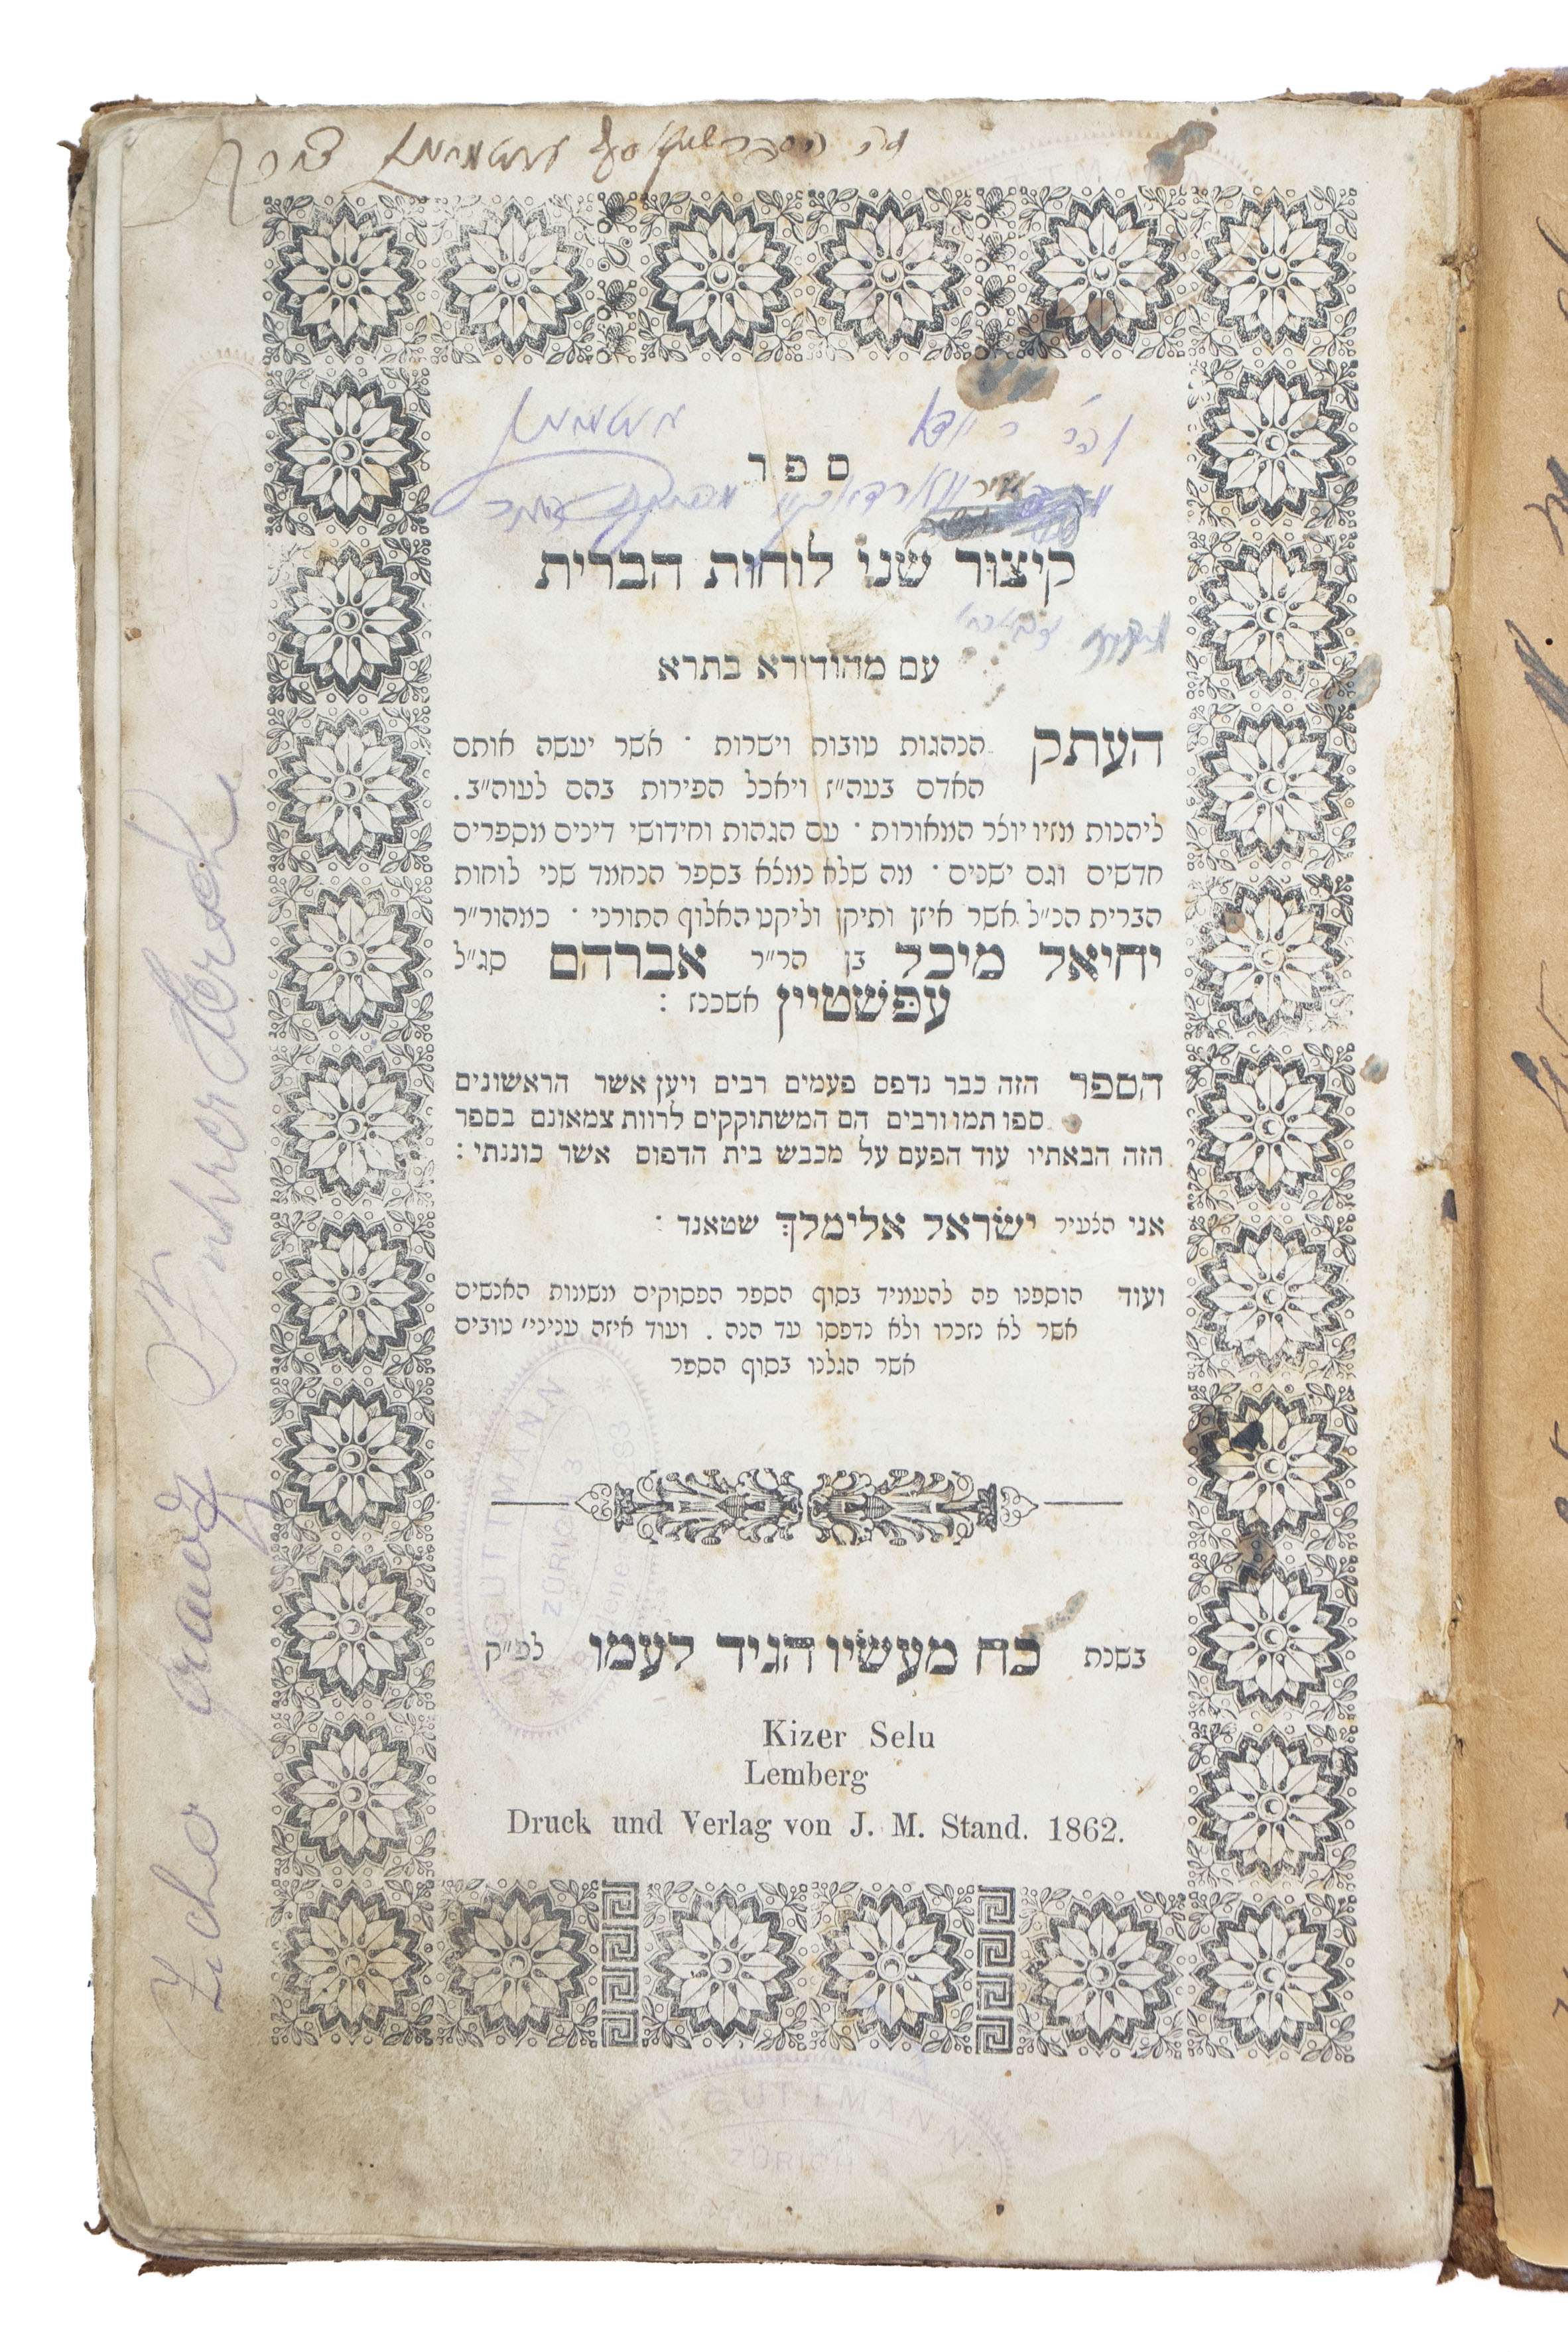 ספר
קיצור שני לוחות הברית
עם מהודורא בתרא
העתק הנהגות טובות וישרות · אשר יעשה אותם
האדם בעה״ז ויאכל הפירות בהם לעוה״ב.
ליהנות מזיו יוצר המאורות · עם הגהות וחידושי דינים מספרים
חדשים וגם ישנים · מה שלא נמצא בספר הנחמד שני לוחות
הברית הנ״ל אשר איזן ותיקן וליקט האלוף התורני · כמהור״ר
יחיאל מיכל בן הר״ר אברהם סג״ל
עפשטיין אשכנז :
הספר הזה כבר נדפס פעמים רבים ויען אשר הראשונים
ספו תמו ורבים הם המשתוקקים לרוות צמאונם בספר
הזה הבאתיו עוד הפעם על מכבש בית הדפוס אשר כוננתי :
אני הצעיר ישראל אלימלך שטאנד :
ועוד הוספנו פה להעמיד בסוף הספר הפסוקים משמות האנשים
אשר לא נזכרו ולא נדפסו עד הנה . ועוד איזה עניני׳ טובים
אשר הגלנו בסוף הספר
J. GUTTMANN
ZÜRICH 3
בשנת כח מעשיו הגיד לעמו לפ״ק
Kizer Selu
Lemberg
Druck und Verlag von J. M. Stand. 1862.
J. GUTTMANN
ZÜRICH